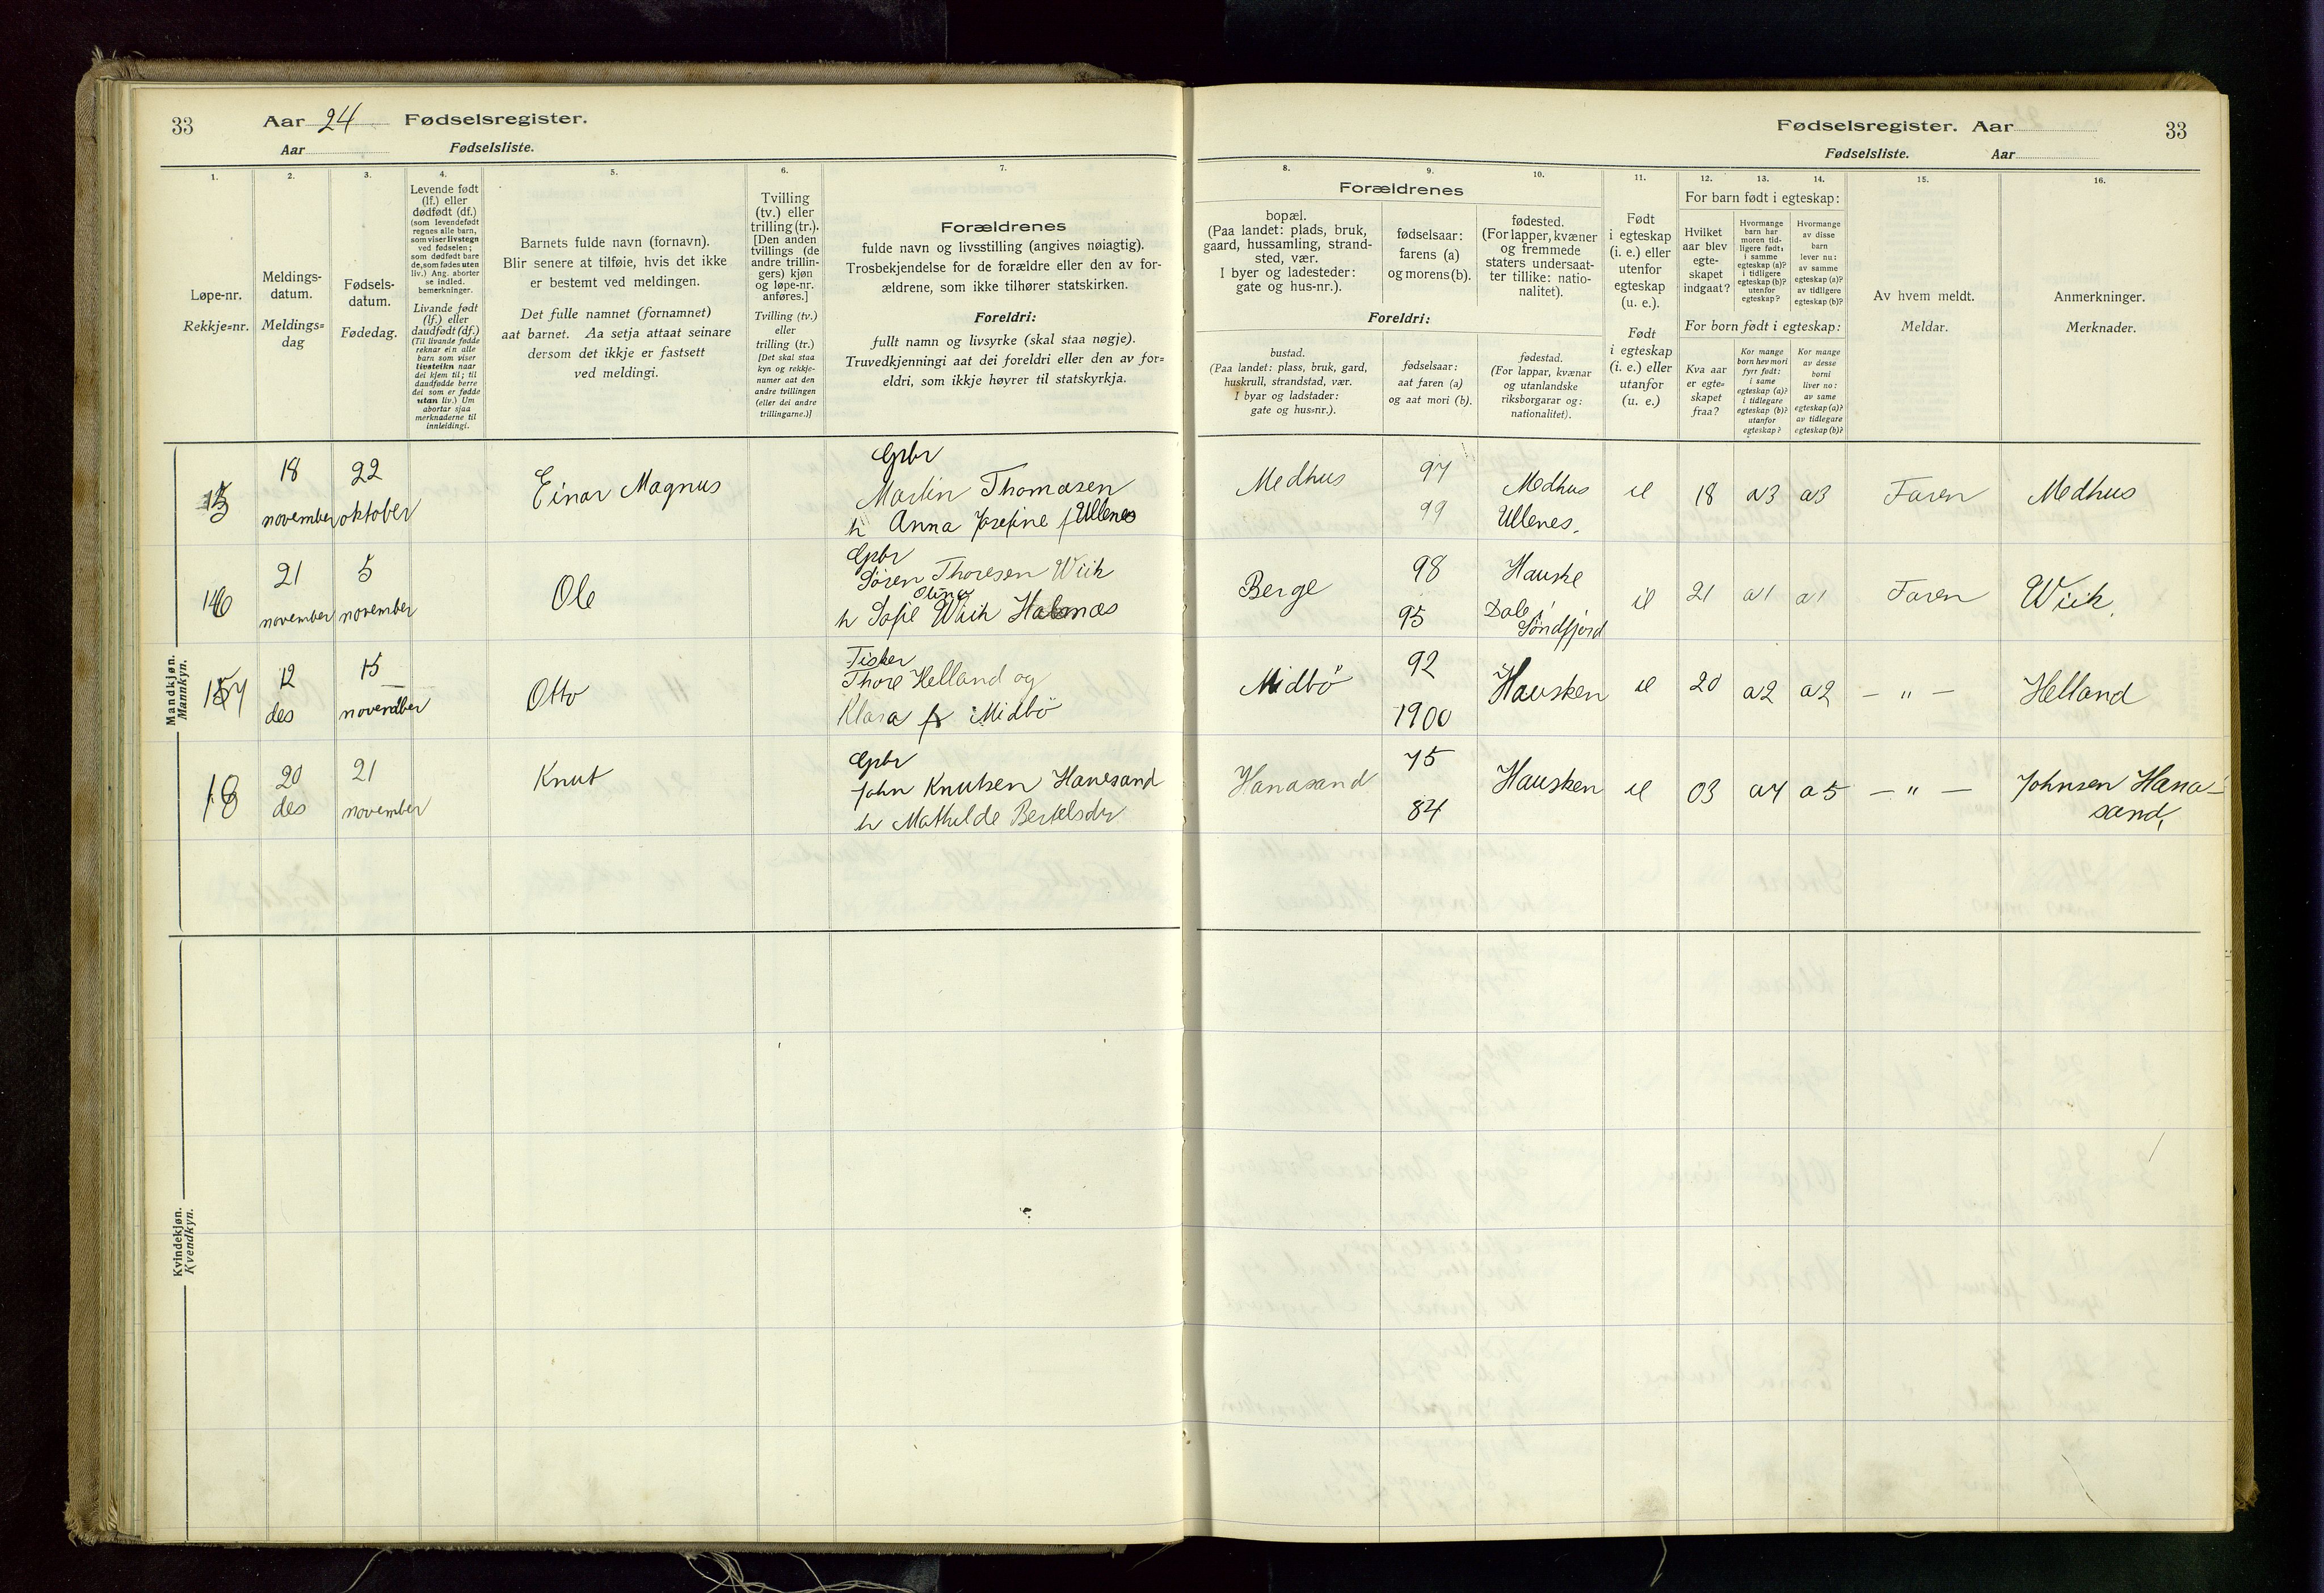 33 Aar 24 Fødselsregister.
Aar Fødselsliste.
Fødselsregister. Aar 33
Fødselsliste. Aar
1.
Løpe-nr.
Rekkje=nr.
2.
Meldings-
datum.
Meldings=
dag
3.
Fødsels-
datum.
Fødedag.
4.
Levende født
(lf.) eller
dødfødt (df.)
(som levendefødt
regnes alle barn,
som viser livstegn
ved fødselen;
som dødfødt bare
de, som fødes uten
liv.) Ang. aborter
se indled.
bemerkninger.
Livande født
(lf.) eller
daudfødt (df.)
(Til livande fødde
reknar ein alle
barn som viser
livsteikn naar
dei kjem til; til
daudfødde berre
dei som er fødde
utan liv.) Um
abortar sjaa
merknaderne til
innleidingi.
5.
Barnets fulde navn (fornavn).
Blir senere at tilføie, hvis det ikke
er bestemt ved meldingen.
Det fulle namnet (fornamnet)
aat barnet. Aa setja attaat seinare
dersom det ikkje er fastsett
ved meldingi.
6.
Tvilling
(tv.) eller
trilling (tr.).
[Den anden
tvillings (de
andre trillin-
gers) kjøn
og løpe-nr.
anføres.]
Tvilling (tv.)
eller
trilling (tr.)
[Det skal staa
kyn og rekkje-
numer aat den
andre tvillingen
(eller dei andre
trillingarne.)]
7.
Forældrenes
fulde navn og livsstilling (angives nøiagtig).
Trosbekjendelse for de forældre eller den av for-
ældrene, som ikke tilhører statskirken.
Foreldri:
fullt namn og livsyrke (skal staa nøgje).
Truvedkjenningi aat dei foreldri eller den av for=
eldri, som ikkje høyrer til statskyrkja.
Forældrenes
8.
bopæl.
(Paa landet: plads, bruk,
gaard, hussamling, strand-
sted, vær.
I byer og ladesteder:
gate og hus-nr.).
9.
fødselsaar:
farens (a)
og morens (b).
10.
fødested.
(For lapper, kvæner
og fremmede
staters undersaat-
ter tillike: natio-
nalitet).
Foreldri:
bustad.
(Paa landet: plass, bruk, gard,
huskrull, strandstad, vær.
I byar og ladstader:
gate og hus=nr.).
fødselsaar:
aat faren (a)
og aat mori (b).
fødestad.
(For lappar, kvænar
og utanlandske
riksborgarar og:
nationalitet).
11.
Født
i egteskap
(i. e.) eller
utenfor
egteskap
(u. e.).
Født
i egteskap
(i. e.) eller
utanfor
(u. e.)
12. 13. 14.
For barn født i egteskap:
Hvilket
aar blev
egte-
skapet
indgaat?
Hvormange
barn har
moren tid-
ligere født:
i samme
egteskap (a)?
i tidligere
egteskap (b)?
utenfor
egteskap?
Hvormange
av disse
barn
lever nu:
av samme
egteskap (a)?
av tidligere
egteskap (b)?
For born født i egteskap:
Kva aar
er egte=
skapet
fraa?
Kor mange
born hev mori
fyrr født:
i same
egteskap (a)?
i tidlegare
egteskap (b)?
utanfor
egteskap?
Kor mange
av desse
borni
liver no:
av same
egteskap (a)?
av tidlegare
egteskap (b)?
15.
Av hvem meldt.
Meldar.
16.
Anmerkninger.
Merknader.
Mandkjøn.
Mannkyn.
15
18
november
22
oktober
Einar Magnus
Gpbr
Martin Thomasen
h Anna Josefine f Ullenes
Medhus
97
99
Medhus
Ullenes.
ie 18 a3 a3 Faren Medhus
16
21
november
5
november
Ole
Gpbr
Søren Thoresen Wiik
Olina
h Sofie Wiik Halsnæs
Berge
98
95
Hauske
Dale i
Søndfjord
ie 21 a1 a1 Faren Wiik.
17
12
des
15
november
Otto
Fisker
Thore Helland og
Klara f Midbö
Midbö
92
1900
Hausken
ie 20 a2 a2 — " — Helland
18
20
des
21
november
Knut
Gpbr
John Knutsen Hanesand
h Mathilde Bertelsdr
Hanasand
75
84
Hausken
ie 03 a7 a5 — " — Johnsen Hana-
sand,
Kvindekjøn.
Kvendkyn.